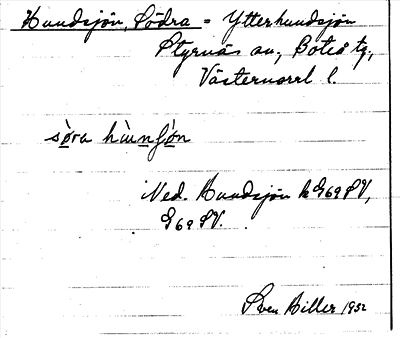 Hundsjön, Södra = Ytterhundsjön
Styrnäs sn, Boteå tg,
Västernorrl l.
sö̀ra hùnʃö̀n
Ned. Hundsjön k G69SV,
G69SV.
Sven Hiller 1952